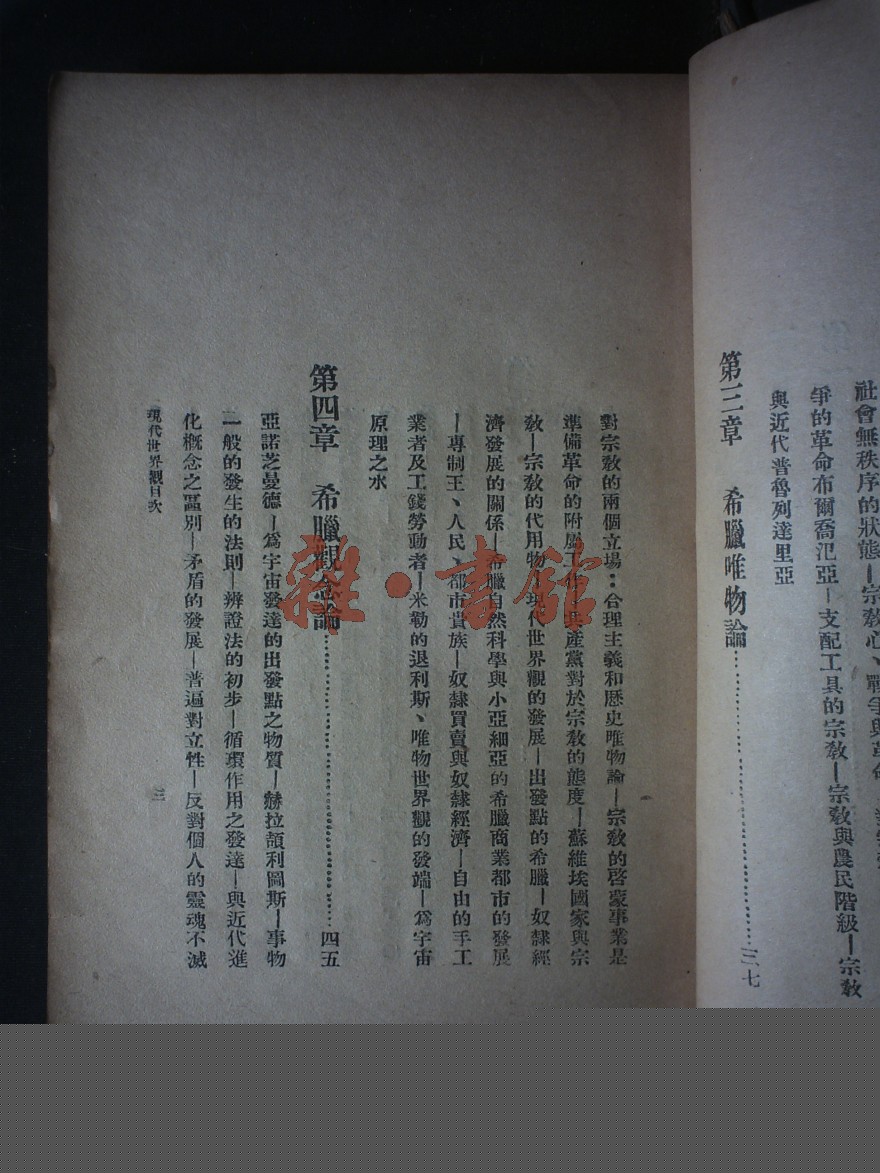 社會無秩序的狀態—宗敎心、戰爭與革命
爭的革命布爾喬汜亞—支配工具的宗敎—宗敎與農民階級—宗敎
與近代普魯列達里亞
第三章 希臘唯物論…………三七
對宗敎的兩個立場：合理主義和歷史唯物論—宗敎的啓蒙事業是
準備革命的附屬工作—共產黨對於宗敎的態度—蘇維埃國家與宗
敎—宗敎的代用物—現代世界觀的發展—出發點的希臘—奴隸經
濟發展的關係—希臘自然科學與小亞細亞的希臘商業都市的發展
—專制王、人民、都市貴族—奴隸買賣與奴隸經濟—自由的手工
業者及工錢勞動者—米勒的退利斯、唯物世界觀的發端—爲宇宙
原理之水
第四章 希臘觀念論…………四五
亞諾芝曼德—爲宇宙發達的出發點之物質—赫拉頡利圖斯—事物
一般的發生的法則—辨證法的初步—循環作用之發達—與近代進
化概念之區別—矛盾的發展—普遍對立性—反對個人的靈魂不滅
現代世界觀目次
三
雜·書館